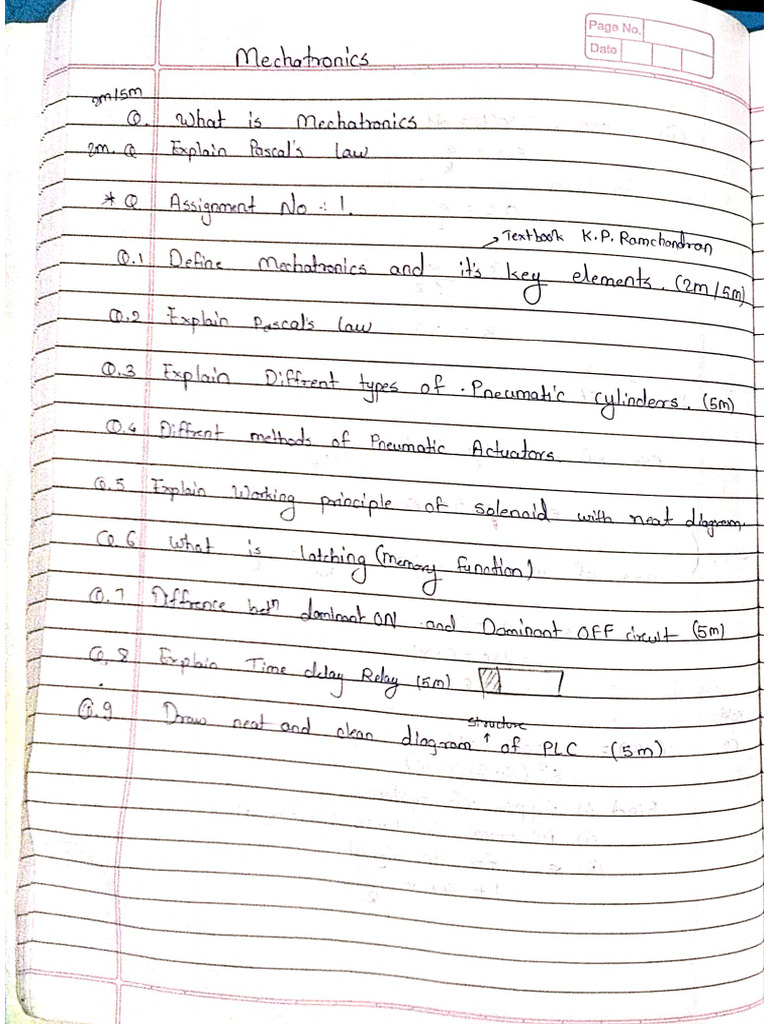 Page No.
Date
Mechatronics
2m/5m
Q. What is Mechatronics
2m. Q Explain Pascal's law
* Q Assignment No : 1.
→ Textbook K.P. Ramchandran
Q.1 Define Mechatronics and it's key elements. (2m/5m)
Q.2 Explain Pascal's law
Q.3 Explain Diffrent types of Pneumatic cylinders. (5m)
Q.4 Diffrent methods of Pneumatic Actuators.
Q.5 Explain Working principle of solenoid with neat diagram.
Q.6 What is latching (memory function)
Q.7 Diffrence betn dominant ON and Dominant OFF circuit (5m)
Q.8 Explain Time delay Relay (5m)
structure
Q.9 Draw neat and clean diagram ↑ of PLC (5m)